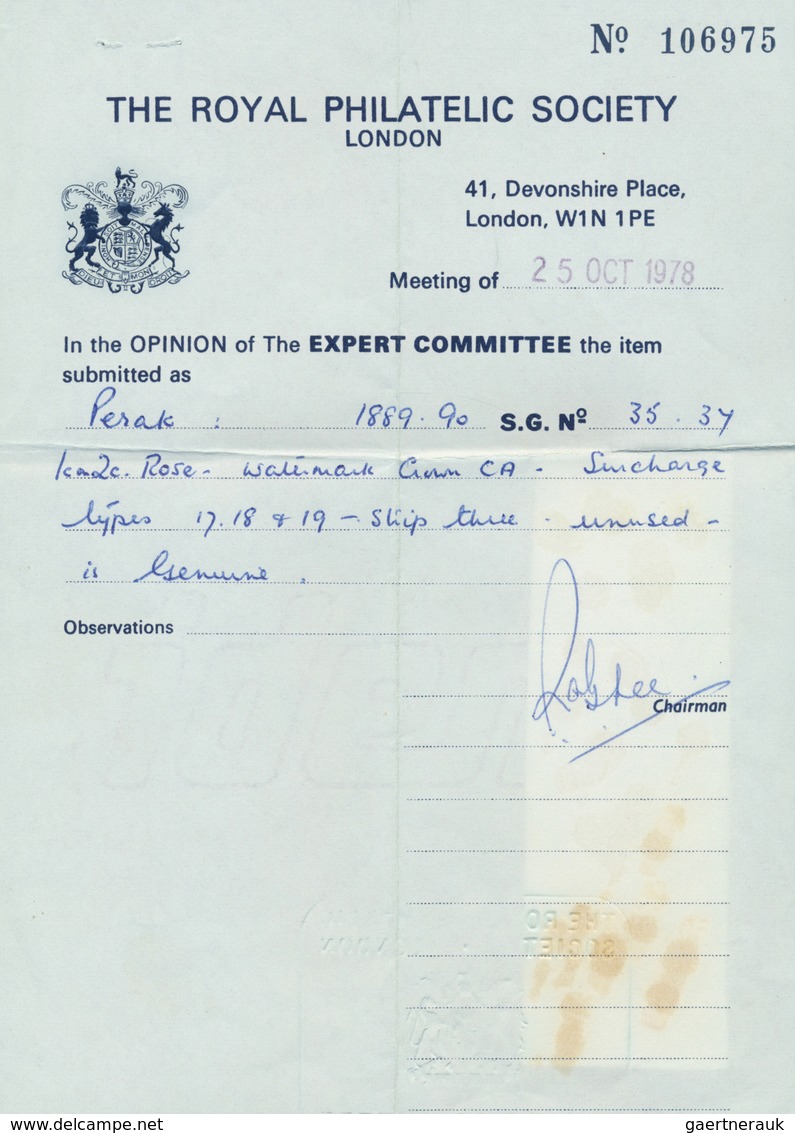 Nº 106975
THE ROYAL PHILATELIC SOCIETY
LONDON
41, Devonshire Place,
London, W1N 1PE
DIEU ET MON DROIT
Meeting of 25 OCT 1978
In the OPINION of The EXPERT COMMITTEE the item
submitted as
Perak : 1889.90 S.G. Nº 35.37
1c on 2c. Rose - Watermark Crown CA - Surcharge
types 17. 18 & 19 - Strip three - unused -
is Genuine.
Observations
Chairman
THE RO
SOCIET
delcampe.net
gaertnerauk